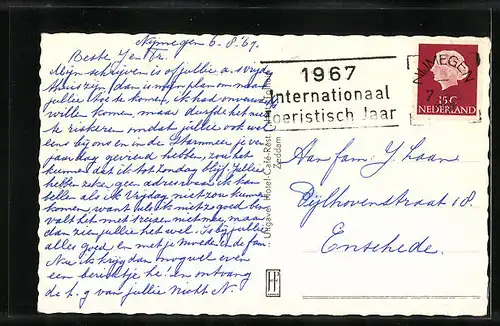 Nijmegen 6-8.'67.
Beste J en Tr.
Mijn schrijven is of jullie a.s. Vrijdag
thuis zijn, dan is mijn plan om naar
jullie toe te komen, ik had onverwachts
willen komen, maar durf het niet
te riskeren omdat jullie ook wel
eens bij ons en in de Stammeer je ver
jaardag gevierd hebben, zou het
kunnen dat ik tot Zondag blijf, jullie
hebben zeker geen adres waar ik kan
bellen als ik Vrijdag niet zou kunnen
komen want als ik niet zo goed ben
valt het met reizen niet mee, maar
dan zien jullie het wel. Is bij jullie
alles goed en met je moeder en de fam
Nu ik krijg dan nog wel even
een berichtje hè! en ontvang
de h.g van jullie nicht N.
Uitgave: Hotel-Café-Rest.
Zeddam
1967
internationaal
toeristisch Jaar
NIJMEGEN
7.
15c
NEDERLAND
Aan fam: J. Laan
Dijlhovenstraat 18.
Enschede.